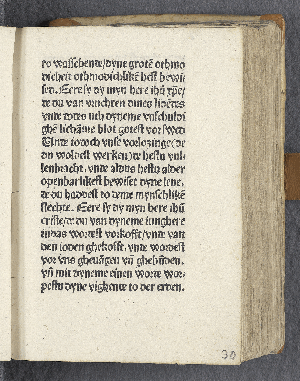 to wasschende/dyne grotē othmo
dicheit othmodichlikē hest bewi
set. Eere sy dy myn here ihū xp̄e/
de du van vruchten dines lidēdes
vnde dodes vth dyneme vnschuldi
ghē lichāme blot gotest vor swet
Unde io doch vnse vorlozinge(de
du woldest werken)de hestu vul⸗
lenbracht. vnde aldus hestu alder
openbarlikest bewiset dyne leue,
de du haddest to deme mynschlikē
slechte. Eere sy dy myn here ihū
criste/de du van dyneme iunghere
iudas wordest vorkofft/vnde van
den ioden ghekofft. vnde wordest
vor vns gheuāgen vn̄ ghebūden.
vn̄ mit dyneme einen worde wor⸗
pestu dyne vighende to der erden.
30